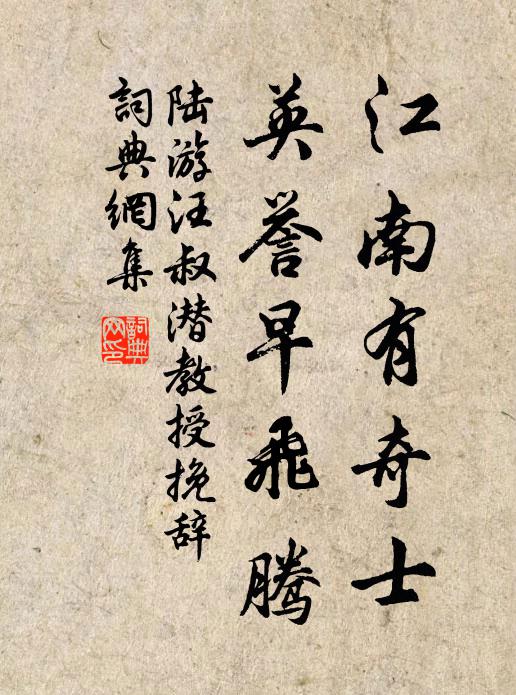 江南有奇士
英誉早飛騰
陆游汪叔潜教授挽辞
詞典網集
詞典网印